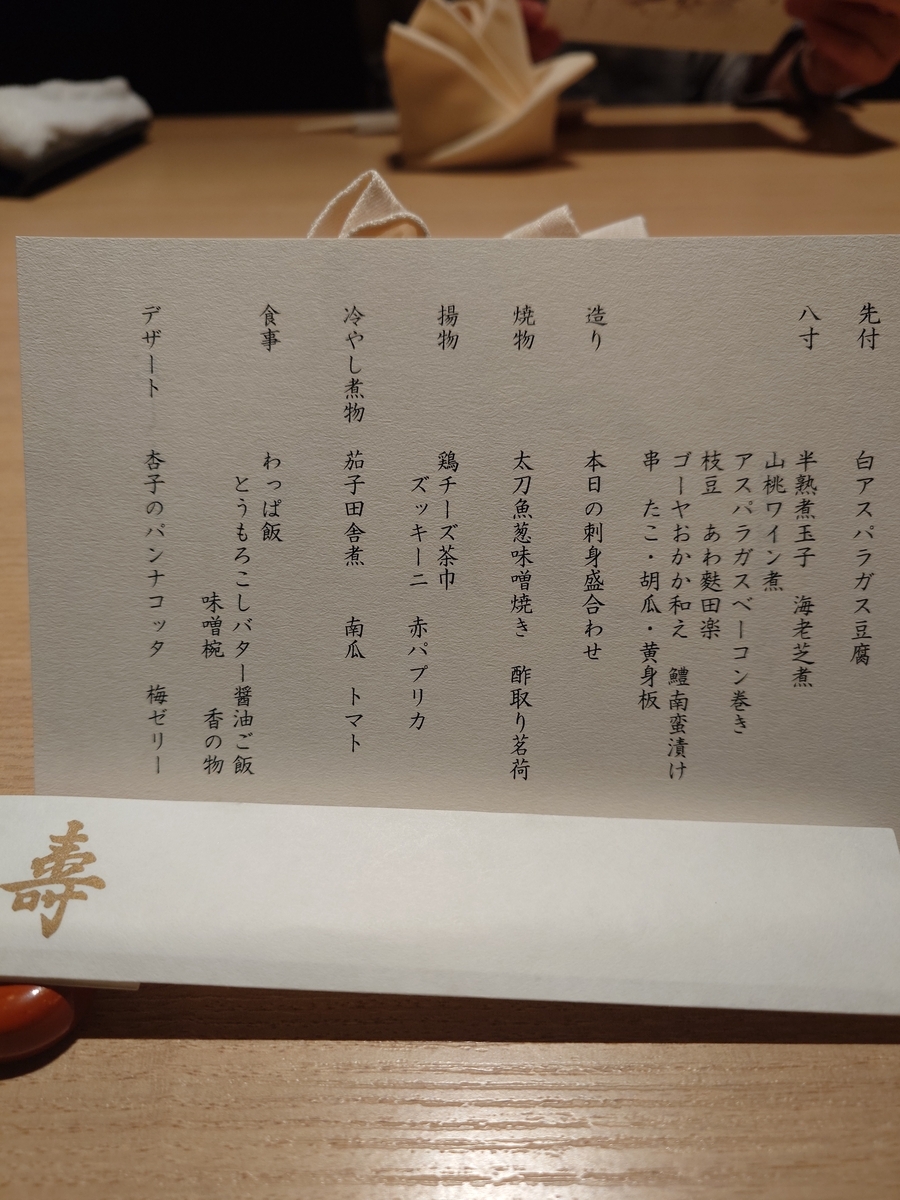 先付　白アスパラガス豆腐
八寸　半熟煮玉子　海老芝煮
山桃ワイン煮
アスパラガスベーコン巻き
枝豆　あわ麩田楽
ゴーヤおかか和え　鱧南蛮漬け
串　たこ・胡瓜・黄身板
造り　本日の刺身盛合わせ
焼物　太刀魚葱味噌焼き　酢取り茗荷
揚物　鶏チーズ茶巾
ズッキーニ　赤パプリカ
冷やし煮物　茄子田舎煮　南瓜　トマト
食事　わっぱ飯
とうもろこしバター醤油ご飯
味噌椀　香の物
デザート　杏子のパンナコッタ　梅ゼリー
壽